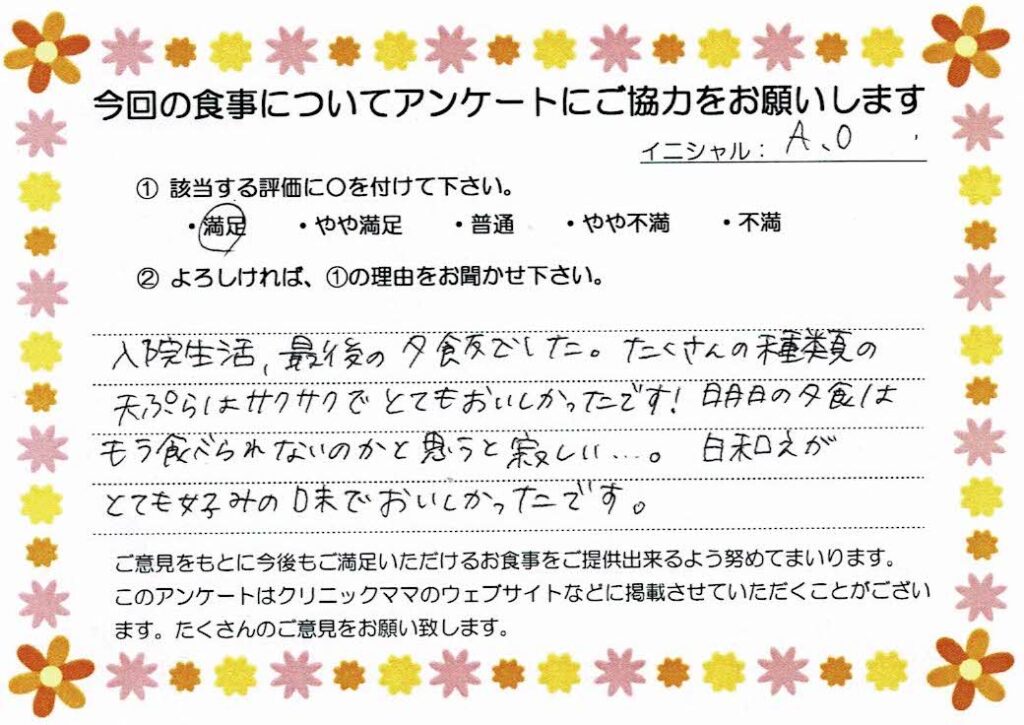 今回の食事についてアンケートにご協力をお願いします
イニシャル： A、O
① 該当する評価に〇を付けて下さい。
・満足 ・やや満足 ・普通 ・やや不満 ・不満
② よろしければ、①の理由をお聞かせ下さい。
入院生活、最後の夕飯でした。たくさんの種類の
天ぷらはサクサクでとてもおいしかったです！明日の夕食は
もう食べられないのかと思うと寂しい…。白和えが
とても好みの味でおいしかったです。
ご意見をもとに今後もご満足いただけるお食事をご提供出来るよう努めてまいります。
このアンケートはクリニックママのウェブサイトなどに掲載させていただくことがござい
ます。たくさんのご意見をお願い致します。